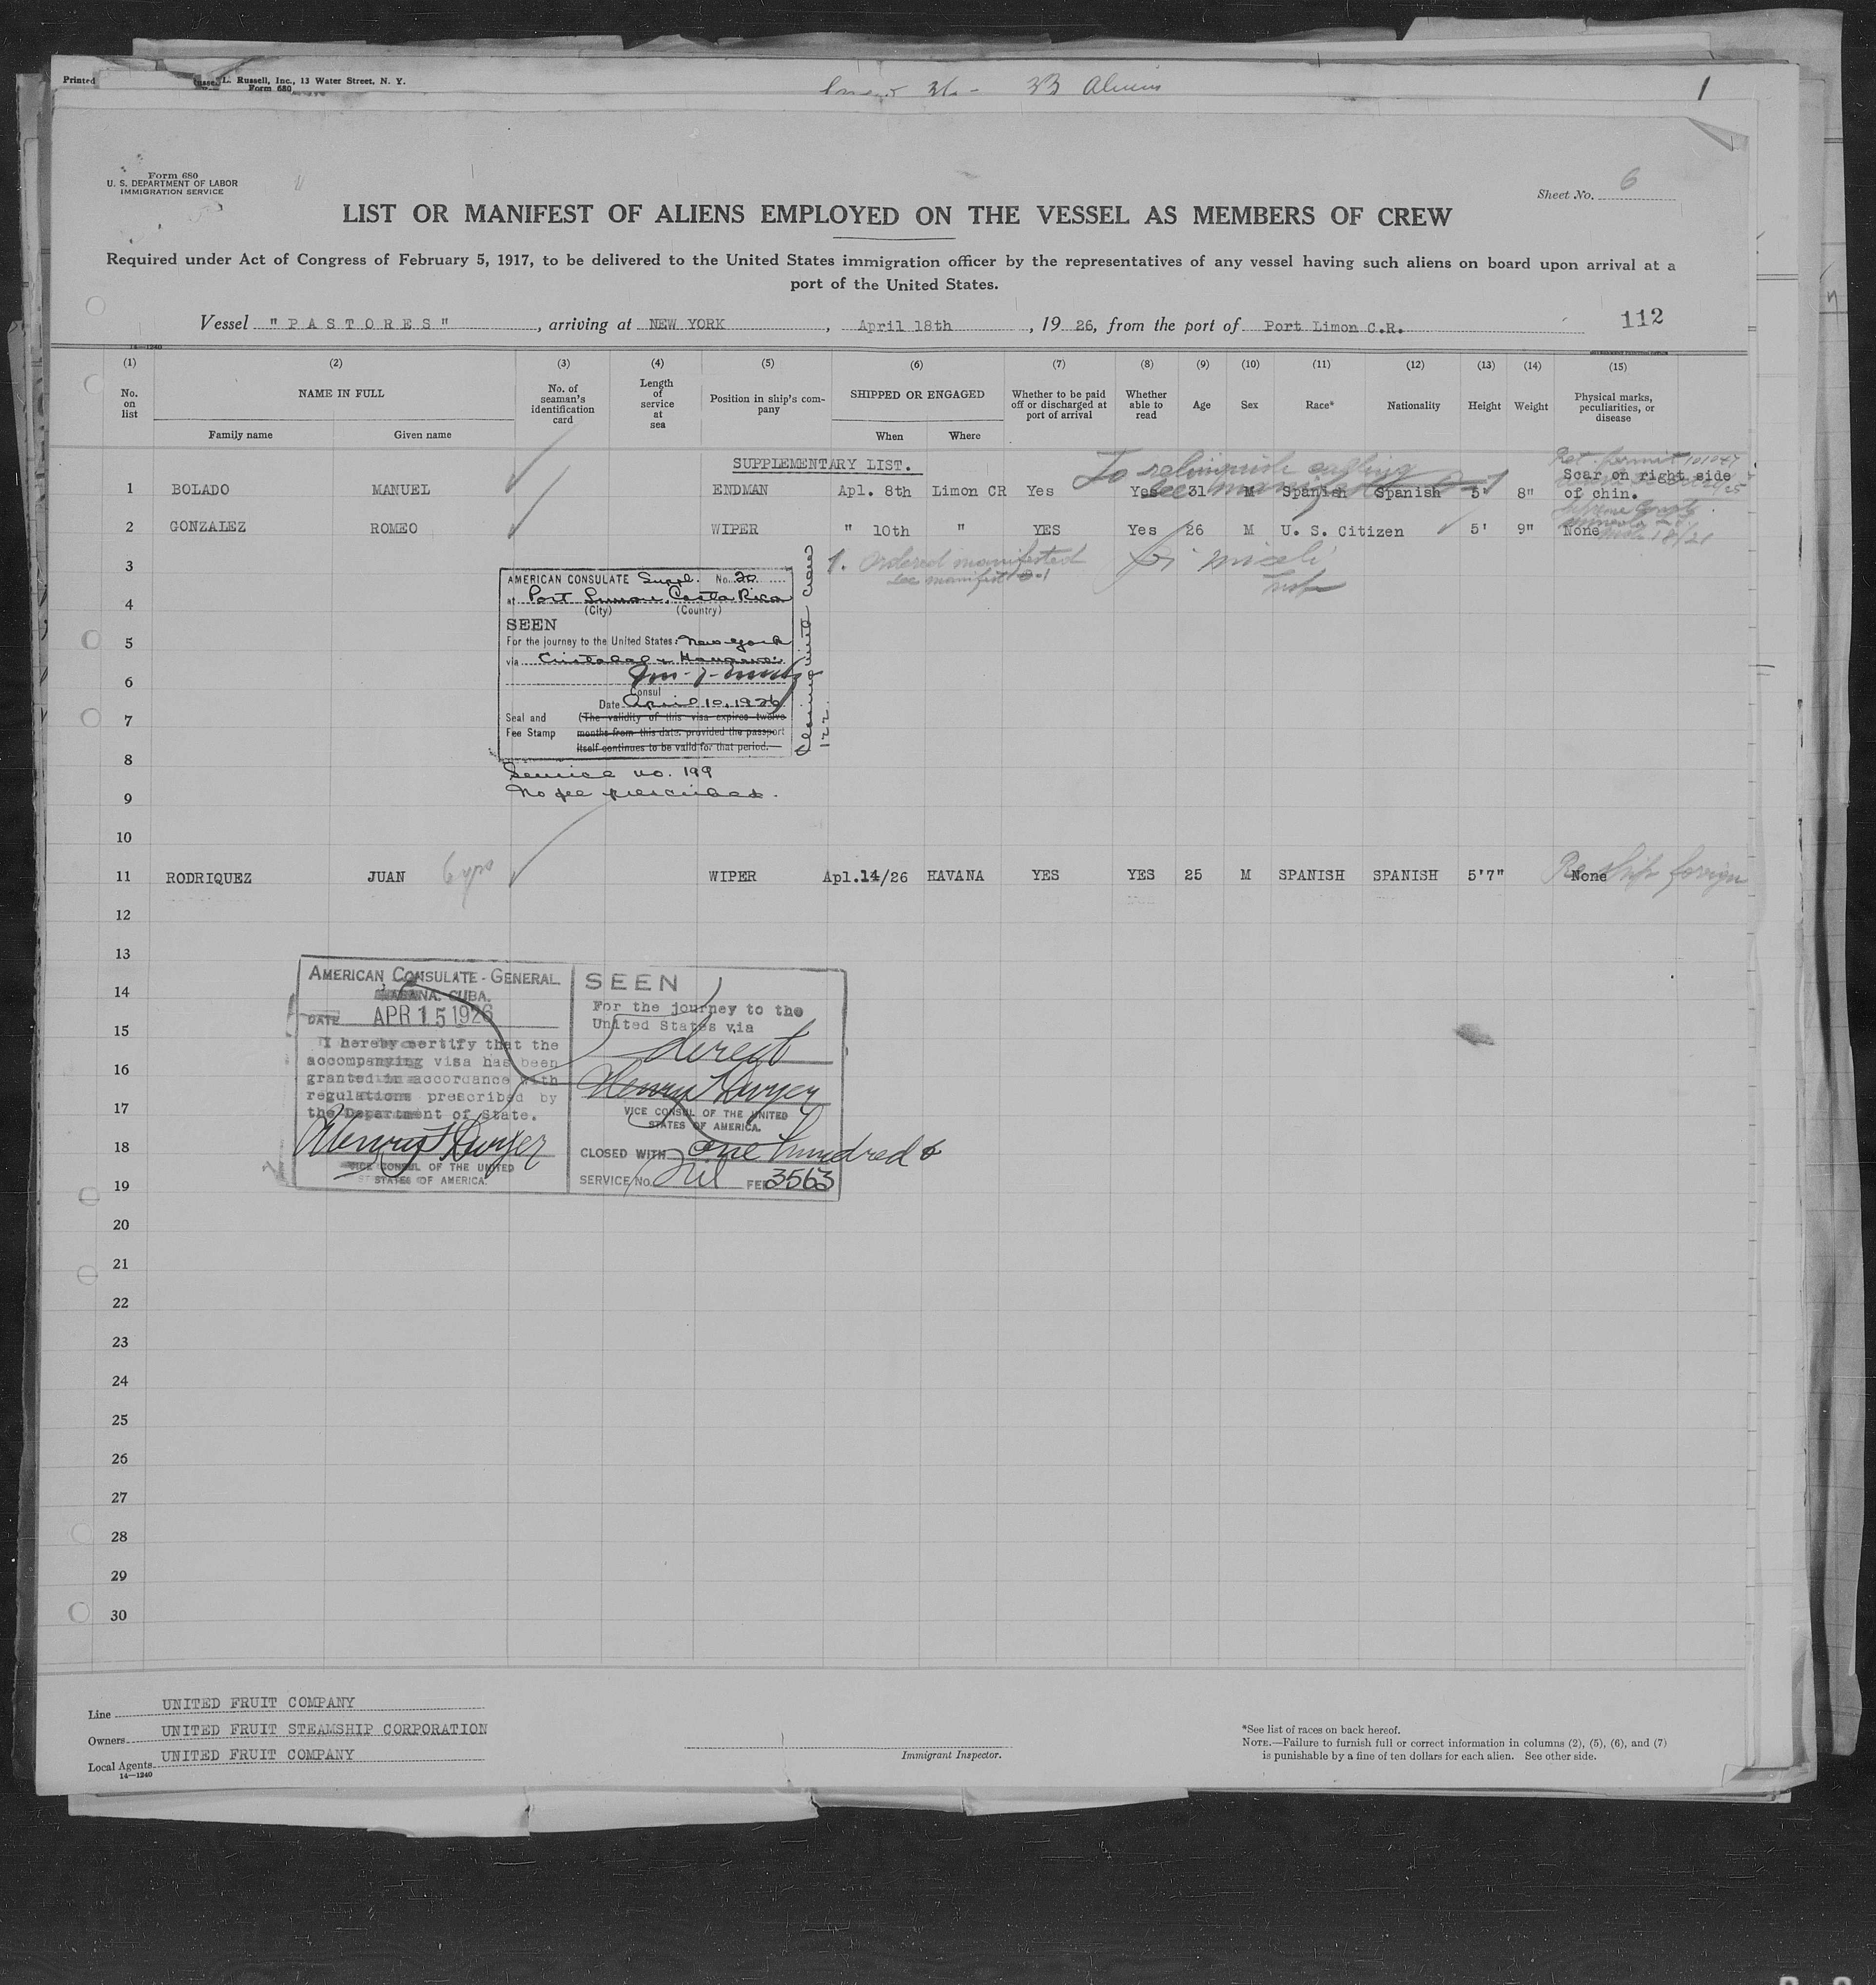 Printed
L. Russell, Inc., 13 Water Street, N. Y.
Form 680
33 Aliens
1
Form 680
U. S. DEPARTMENT OF LABOR
IMMIGRATION SERVICE
Sheet No. 6
LIST OR MANIFEST OF ALIENS EMPLOYED ON THE VESSEL AS MEMBERS OF CREW
Required under Act of Congress of February 5, 1917, to be delivered to the United States immigration officer by the representatives of any vessel having such aliens on board upon arrival at a
port of the United States.
Vessel "PASTORES", arriving at NEW YORK, April 18th, 19 26, from the port of Port Limon C.R. 112
14—1240
(1) (2) (3) (4) (5) (6) (7) (8) (9) (10) (11) (12) (13) (14) (15)
No. on list NAME IN FULL No. of seaman's identification card Length of service at sea Position in ship's company SHIPPED OR ENGAGED Whether to be paid off or discharged at port of arrival Whether able to read Age Sex Race* Nationality Height Weight Physical marks, peculiarities, or disease
Family name Given name When Where
SUPPLEMENTARY LIST.
To relinquish calling
see manifest
Ret. permit 101047
1 BOLADO MANUEL ENDMAN Apl. 8th Limon CR Yes Yes 31 M Spanish Spanish 5' 8" Scar on right side
of chin.
2 GONZALEZ ROMEO WIPER " 10th " YES Yes 26 M U. S. Citizen 5' 9" None
3
1. Ordered manifested
see manifest
4
5
6
7
8
9
10
AMERICAN CONSULATE Suppl. No. 20
at Port Limon, Costa Rica
(City) (Country)
SEEN
For the journey to the United States: New York
via Cristobal & Havana
Consul
Date April 10, 1926
Seal and (The validity of this visa expires twelve
Fee Stamp months from this date, provided the passport
itself continues to be valid for that period.
Service no. 199
No fee prescribed.
11 RODRIQUEZ JUAN 6 yrs WIPER Apl.14/26 HAVANA YES YES 25 M SPANISH SPANISH 5'7" None
Reship foreign
12
13
14
15
16
17
18
19
AMERICAN CONSULATE-GENERAL
HABANA, CUBA.
DATE APR 15 1926
I hereby certify that the
accompanying visa has been
granted in accordance with
regulations prescribed by
the Department of State.
Henry T Dwyer
VICE CONSUL OF THE UNITED
STATES OF AMERICA.
SEEN
For the journey to the
United States via
direct
Henry T Dwyer
VICE CONSUL OF THE UNITED
STATES OF AMERICA.
CLOSED WITH one hundred &
SERVICE No. Nil FEE 3563
20
21
22
23
24
25
26
27
28
29
30
Line UNITED FRUIT COMPANY
Owners UNITED FRUIT STEAMSHIP CORPORATION
Local Agents UNITED FRUIT COMPANY
14—1240
Immigrant Inspector.
*See list of races on back hereof.
NOTE.—Failure to furnish full or correct information in columns (2), (5), (6), and (7)
is punishable by a fine of ten dollars for each alien. See other side.